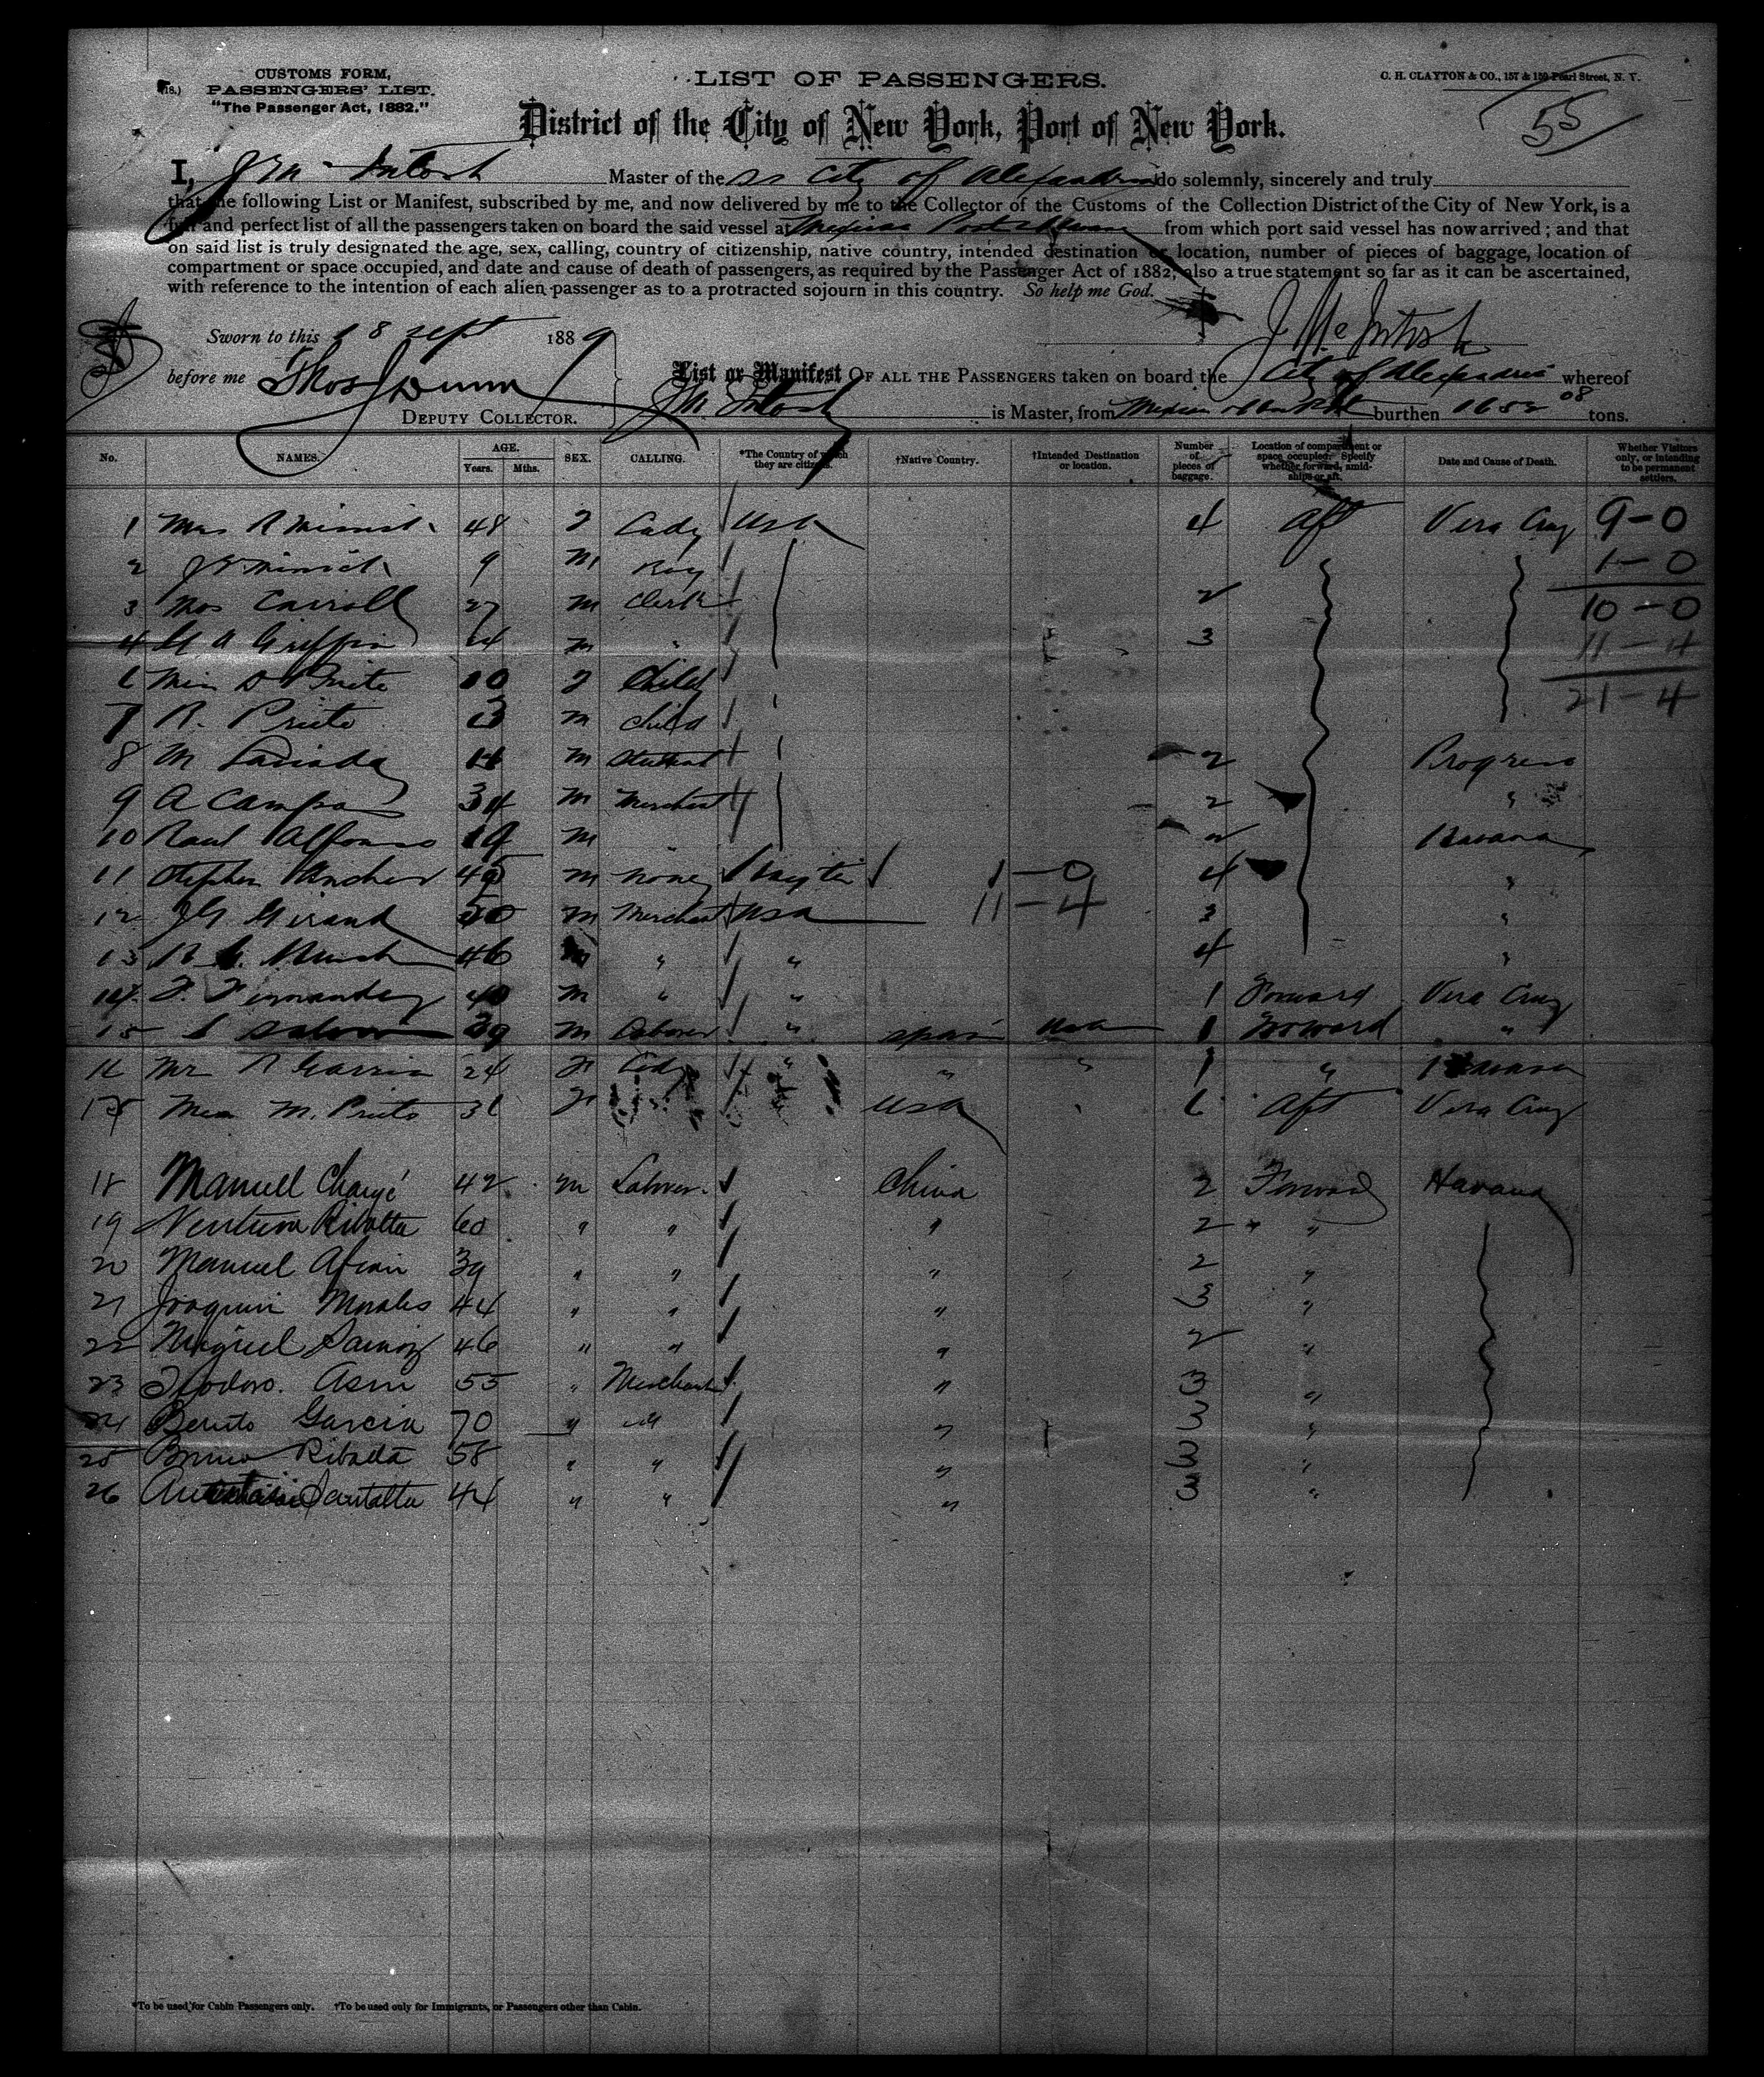 (18.)
CUSTOMS FORM,
PASSENGERS' LIST.
"The Passenger Act, 1882."
LIST OF PASSENGERS.
C. H. CLAYTON & CO., 157 & 159 Pearl Street, N. Y.
55
District of the City of New York, Port of New York.
I, J McIntosh Master of the SS City of Alexandria do solemnly, sincerely and truly
that the following List or Manifest, subscribed by me, and now delivered by me to the Collector of the Customs of the Collection District of the City of New York, is a
full and perfect list of all the passengers taken on board the said vessel at Mexican Ports & Havana from which port said vessel has now arrived; and that
on said list is truly designated the age, sex, calling, country of citizenship, native country, intended destination or location, number of pieces of baggage, location of
compartment or space occupied, and date and cause of death of passengers, as required by the Passenger Act of 1882; also a true statement so far as it can be ascertained,
with reference to the intention of each alien passenger as to a protracted sojourn in this country. So help me God.
Sworn to this 18 Sept 1889
J McIntosh
before me Thos J Dunn
DEPUTY COLLECTOR.
List or Manifest OF ALL THE PASSENGERS taken on board the City of Alexandria whereof
J McIntosh is Master, from burthen tons.
No. NAMES. AGE. Years. Mths. SEX. CALLING. *The Country of which they are citizens. †Native Country. †Intended Destination or location. Number of pieces of baggage. Location of compartment or space occupied. Specify whether forward, amidships or aft. Date and Cause of Death. Whether Visitors only, or intending to be permanent settlers.
1 Mrs R 48 F Lady USA 4 Aft Vera Cruz 9-0
2 9 M Boy 1-0
3 Thos Carroll 27 M Clerk 2 10-0
4 Griffin M " 3 11-4
6 Miss Prieto 10 F Child 21-4
7 R. Prieto 13 M Child
8 M 14 M Student 2 Progreso
9 A Campos 34 M Merchant 2 "
10 Raul Alfonso 19 M 2 Havana
11 Stephen M None Hayti 1-0 4 "
12 J G Giraud 50 M Merchant USA 11-4 3 "
13 46 M " " 4 "
14 F. Fernandez 40 M " " 1 Forward Vera Cruz
15 39 M Laborer " Spain USA 1 Forward "
16 R Garcia 24 F Lady " " " 1 " Havana
17 M. Prieto F USA " 6 Aft Vera Cruz
18 Manuel 42 M Laborer China 2 Forward Havana
19 Ventura Ribalta 60 " " " 2 "
20 Manuel 39 " " " 2 "
21 Joaquin Morales 44 " " " 3 "
22 Miguel 46 " " " 2 "
23 Teodoro. Asin 55 " Merchant " 3 "
24 Benito Garcia 70 " " " 3 "
25 Bruno Ribalta 58 " " " 3 "
26 44 " " " 3 "
*To be used for Cabin Passengers only. †To be used only for Immigrants, or Passengers other than Cabin.